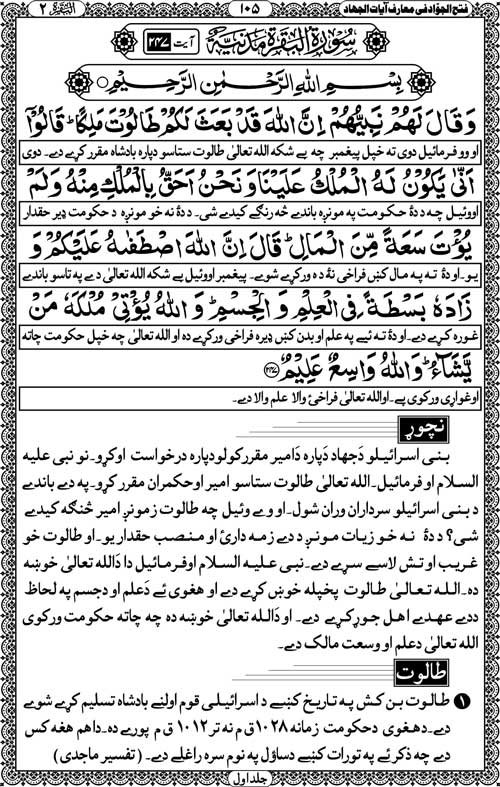 فتح الجوّاد فی معارف آیات الجهاد ۱۰۵ البقرة ۲
سُوْرَةُ الْبَقَرَةِ مَدَنِيَّةٌ آیت ۲۴۷
بِسْمِ اللهِ الرَّحْمٰنِ الرَّحِيْمِ
وَقَالَ لَهُمْ نَبِيُّهُمْ اِنَّ اللهَ قَدْ بَعَثَ لَكُمْ طَالُوْتَ مَلِكًا ؕ قَالُوْۤا
او وفرمائیل دوی ته خپل پیغمبر چه بے شکه الله تعالیٰ طالوت ستاسو دپاره بادشاه مقرر کړے دے۔ دوی
اَنّٰى يَكُوْنُ لَهُ الْمُلْكُ عَلَيْنَا وَ نَحْنُ اَحَقُّ بِالْمُلْكِ مِنْهُ وَلَمْ
اووئیل چه ددۀ حکومت په مونږه باندے څه رنګے کیدے شی۔ ددۀ نه خو مونږه د حکومت ډیر حقدار
يُؤْتَ سَعَةً مِّنَ الْمَالِ ؕ قَالَ اِنَّ اللهَ اصْطَفٰىهُ عَلَيْكُمْ وَ
یو۔ او دۀ ته په مال کښ فراخی نۀ ده ورکړے شوے۔ پیغمبر اووئیل بے شکه الله تعالیٰ دے په تاسو باندے
زَادَهٗ بَسْطَةً فِى الْعِلْمِ وَ الْجِسْمِ ؕ وَ اللهُ يُؤْتِىْ مُلْكَهٗ مَنْ
غوره کړے دے۔ او دۀ ته ئے په علم او بدن کښ ډیره فراخی ورکړے ده او الله تعالیٰ چه خپل حکومت چاته
يَّشَآءُ ؕ وَاللهُ وَاسِعٌ عَلِيْمٌ ﴿۲۴۷﴾
اوغواړی ورکوی ئے۔ اوالله تعالیٰ فراخئ والا علم والا دے۔
نچوړ
بنی اسرائیلو دَجهاد دَپاره دَامیر مقررکولو دپاره درخواست اوکړو۔ نو نبی علیه
السلام او فرمائیل۔ الله تعالیٰ طالوت ستاسو امیر او حکمران مقرر کړو۔ په دے باندے
د بنی اسرائیلو سرداران وران شول۔ او وے وئیل چه طالوت زمونږ امیر څنګه کیدے
شی؟ ددۀ نه خو زیات مونږ د دے ذمه دارئ او منصب حقدار یو۔ او طالوت خو
غریب او تش لاسے سړے دے۔ نبی علیه السلام اوفرمائیل دا دَالله تعالیٰ خوښه
ده۔ الله تعالیٰ طالوت پخپله خوښ کړے دے او هغوی ئے دَعلم او دجسم په لحاظ
ددے عهدے اهل جوړکړے دے۔ او دَالله تعالیٰ خوښه ده چه چاته حکومت ورکوی
الله تعالیٰ دعلم او وسعت مالک دے۔
طالوت
۱ طالوت بن کش په تاریخ کښے د اسرائیلی قوم اولنے بادشاه تسلیم کړے شوے
دے۔ دهغوی دحکومت زمانه ۱۰۲۸ ق م نه تر ۱۰۱۲ ق م پورے ده۔ داهم هغه کس
دے چه ذکر ئے په تورات کښے دساؤل په نوم سره راغلے دے۔ (تفسیر ماجدی)
جلد اول